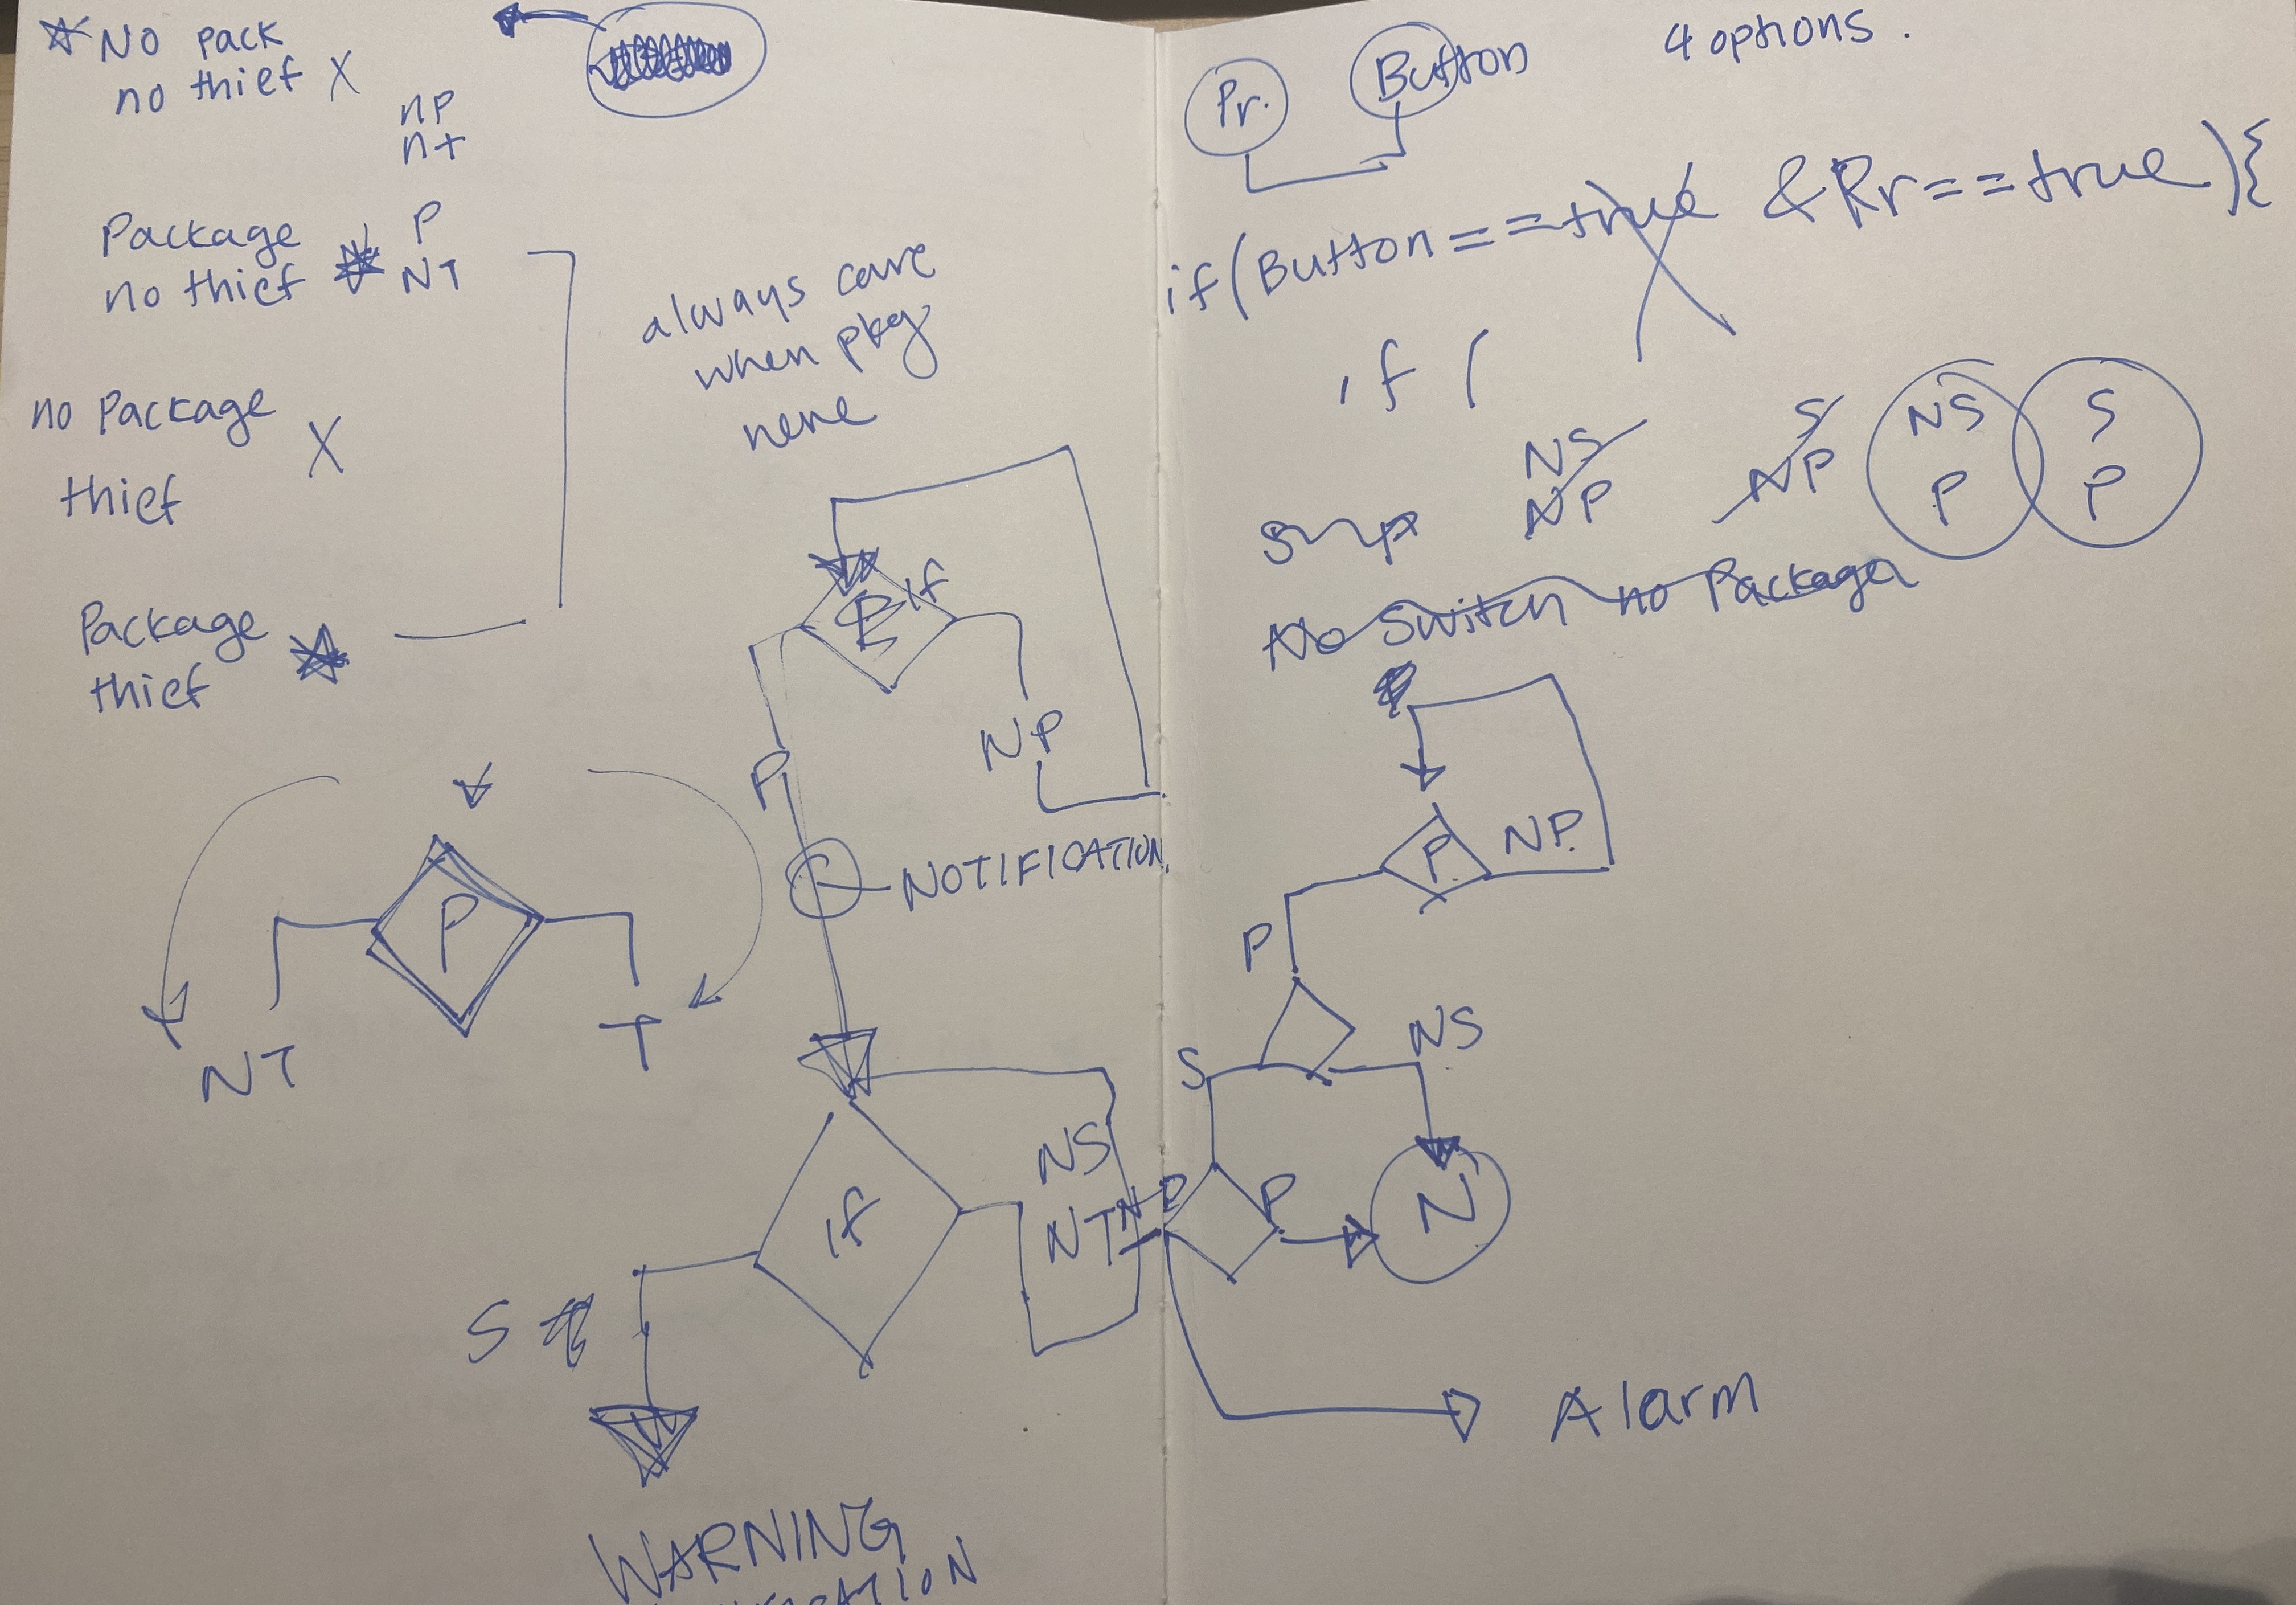 No pack
no thief X
np
nt
Package
no thief
P
NT
no Package
X
thief
Package
thief
always care
when pkg
here
if
P
NP
NOTIFICATION.
P
NT
T
if
NS
NT
S
WARNING
Pr.
Button
4 options.
if(Button==true &Pr==true){
if (
NS
NP
S
NP
NS
P
S
P
No Switch no Package
P
NP.
P
S
NS
NP
P
N
Alarm